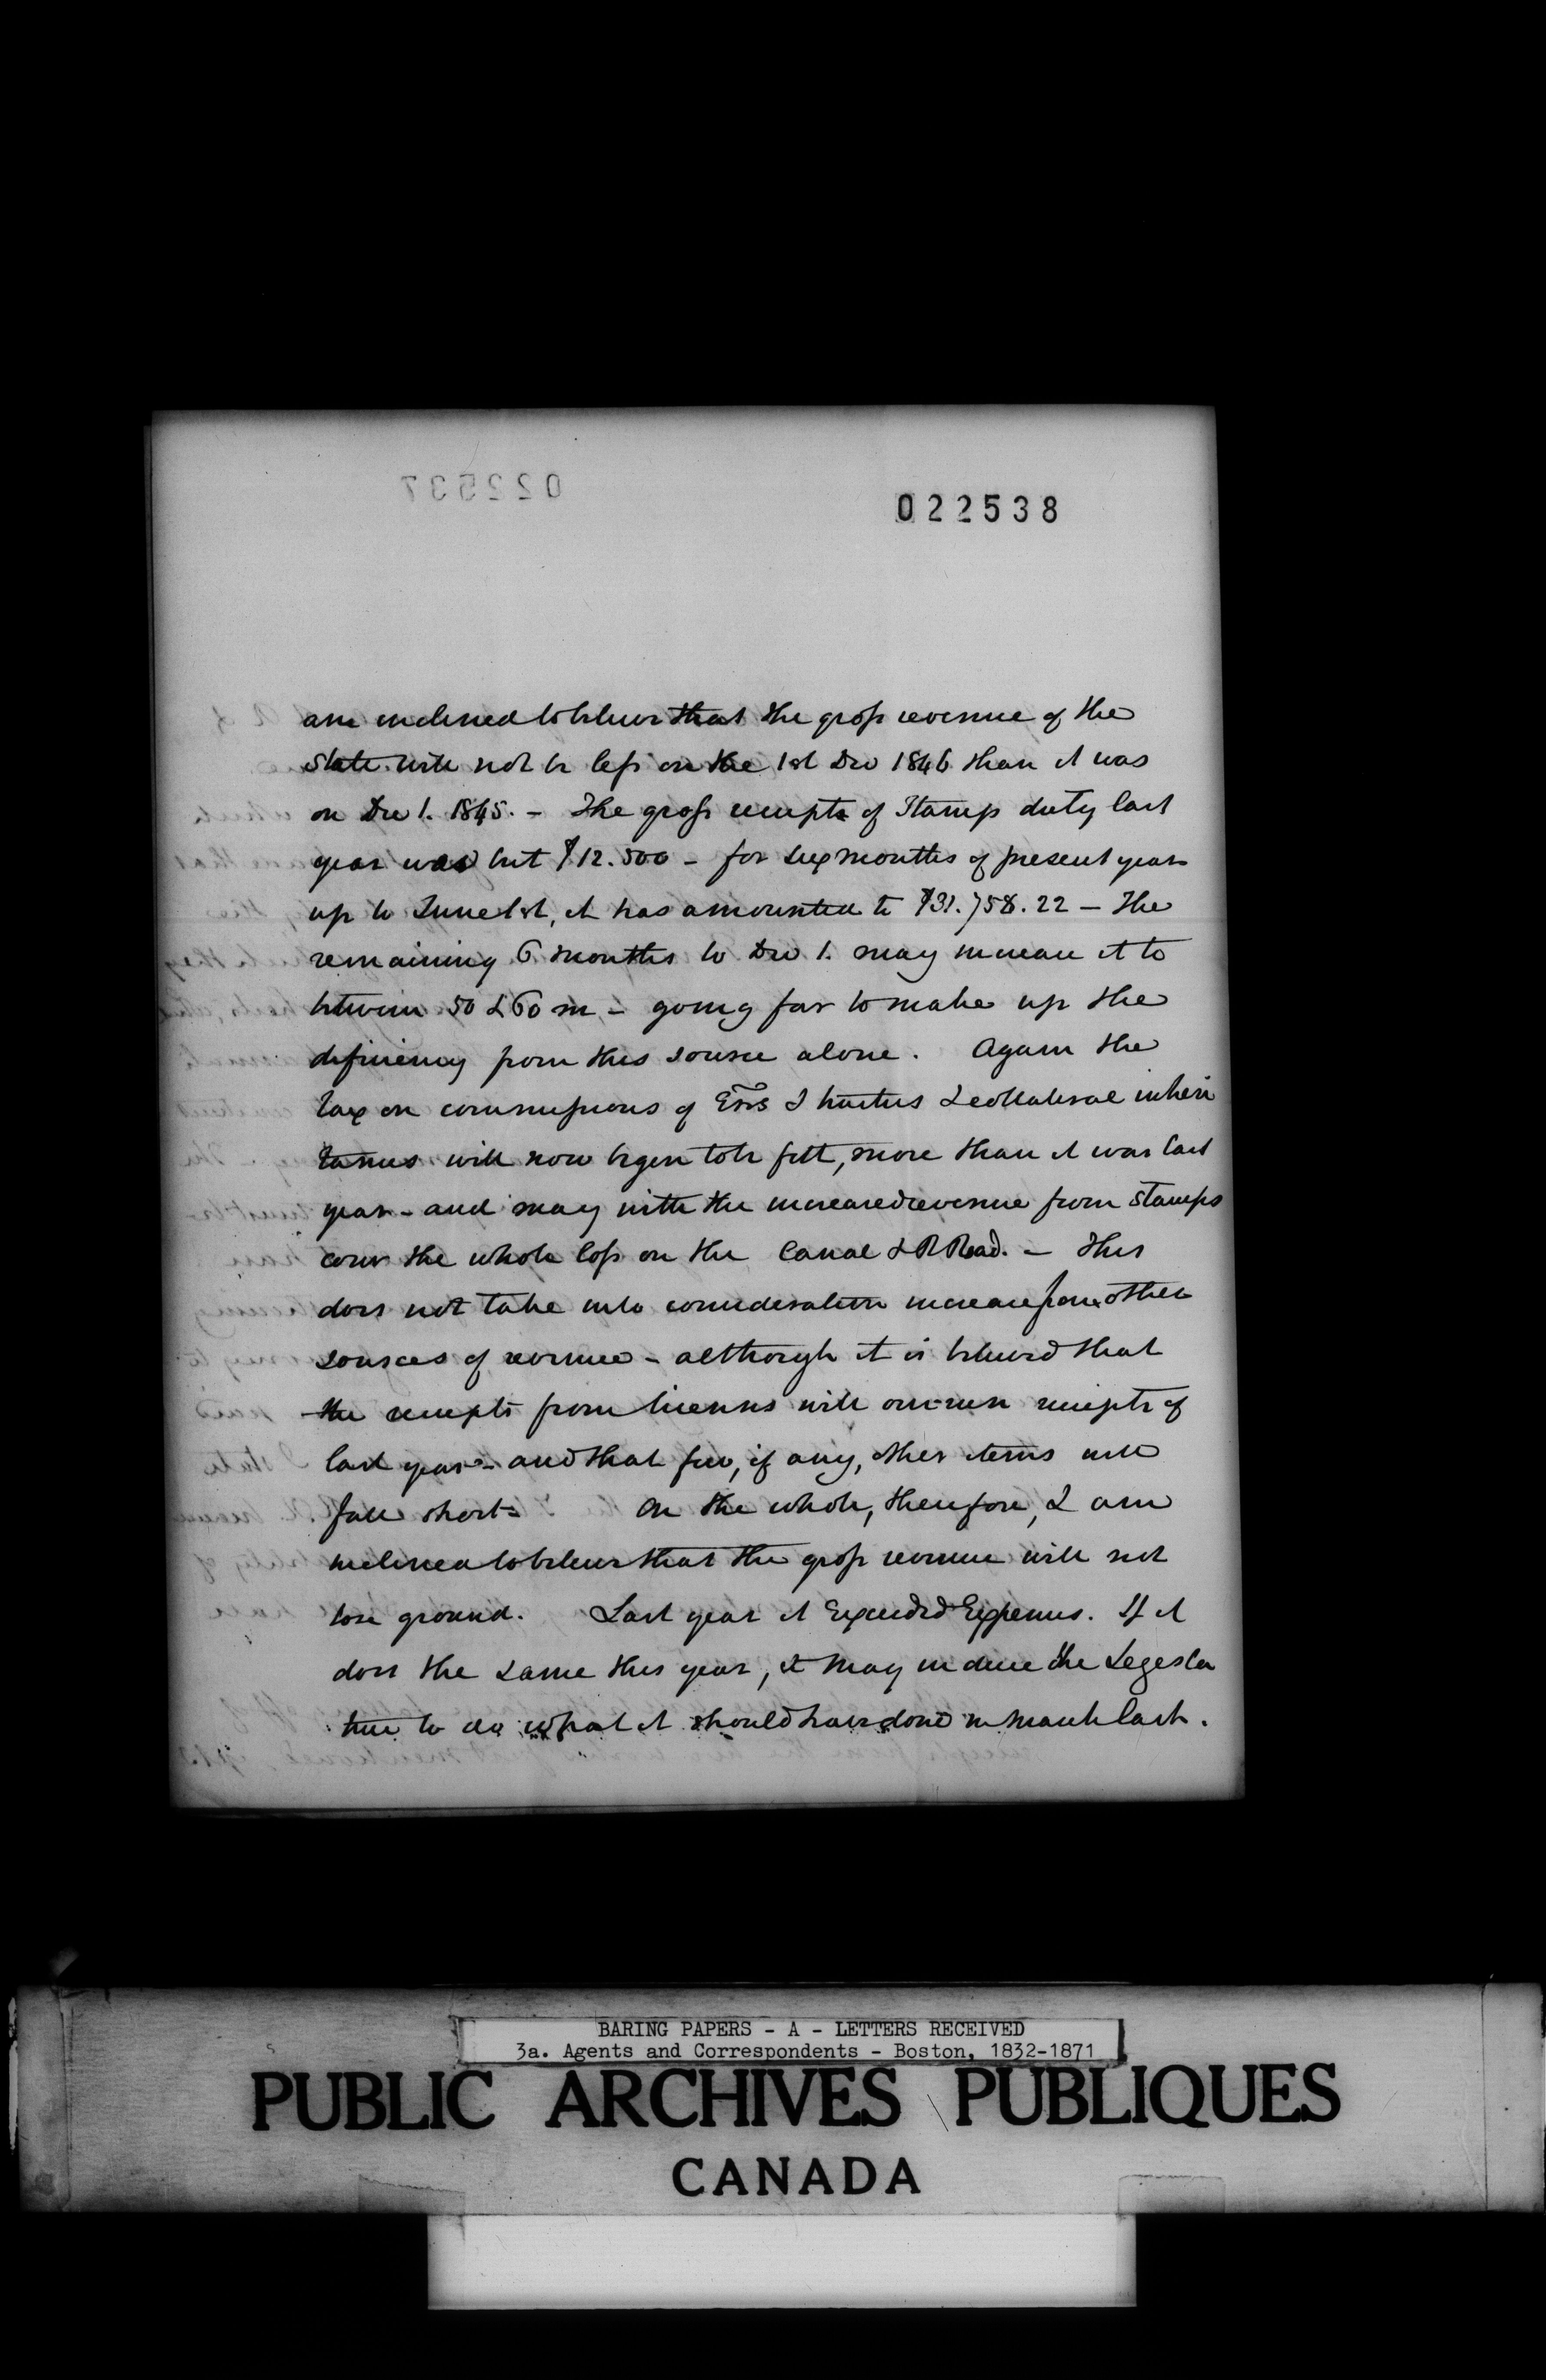 022537
022538
am inclined to believe that the gross revenue of the
State will not be less on the 1st Dec 1846 than it was
on Dec 1. 1845. – The gross receipts of Stamp duty last
year was but $12.500 – for six months of present year
up to June 1st, it has amounted to $31.758.22 – The
remaining 6 months to Dec 1. may increase it to
between 50 & 60 m – going far to make up the
deficiency from this source alone. Again the
tax on commissions of Exrs & trustees & collateral inheri
tances will now begin to be felt, more than it was last
year – and may with the increased revenue from stamps
cover the whole loss on the Canal & R Road. – This
does not take into consideration increase from other
sources of revenue – although it is believed that
the receipts from licenses will over-run receipts of
last year – and that few, if any, other items will
fall short – On the whole, therefore, I am
inclined to believe that the gross revenue will not
lose ground. Last year it Exceeded Expenses. If it
does the same this year, it may induce the Legisla
ture to do what it should have done in March last.
BARING PAPERS - A - LETTERS RECEIVED
3a. Agents and Correspondents - Boston, 1832-1871
PUBLIC ARCHIVES PUBLIQUES
CANADA